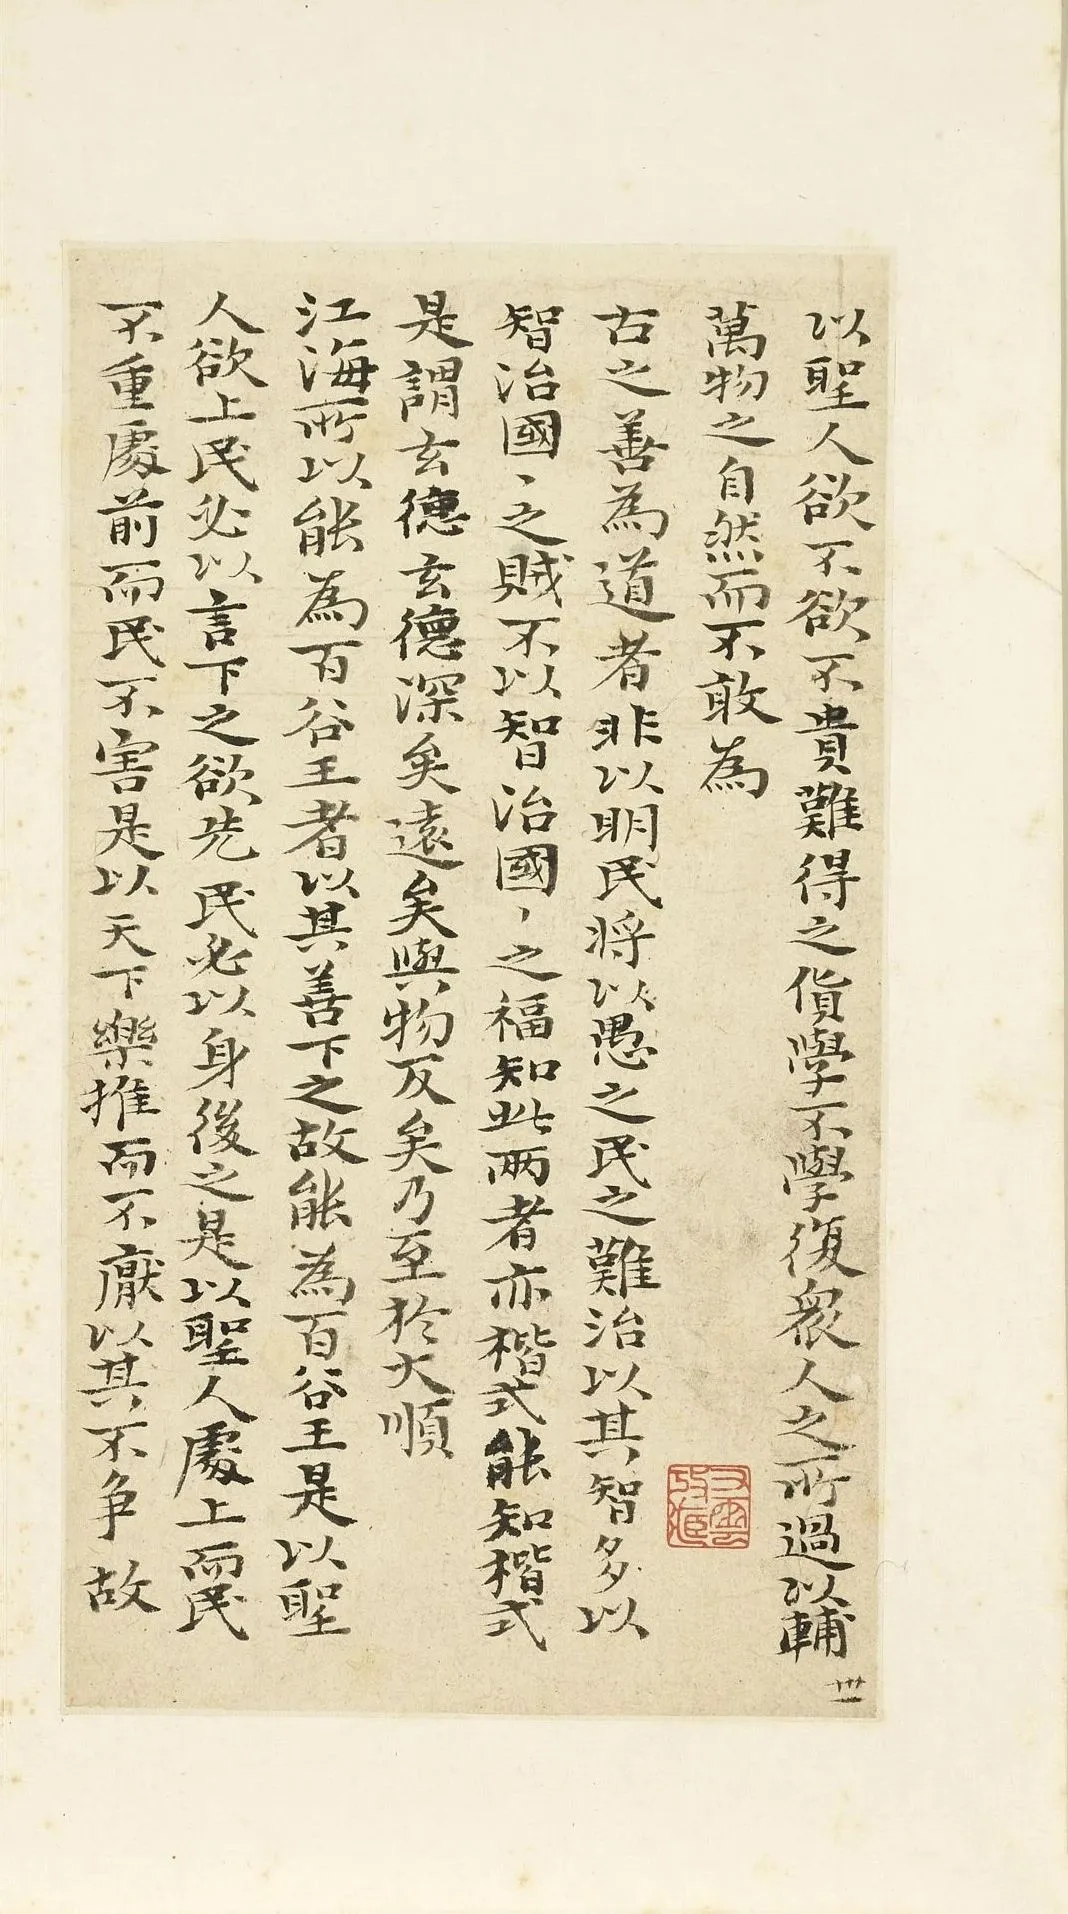 以聖人欲不欲不貴難得之貨學不學復衆人之所過以輔
萬物之自然而不敢為
古之善為道者非以明民將以愚之民之難治以其智多以
智治國、之賊不以智治國、之福知此兩者亦楷式能知楷式
是謂玄德玄德深矣遠矣與物反矣乃至於大順
江海所以能為百谷王者以其善下之故能為百谷王是以聖
人欲上民必以言下之欲先民必以身後之是以聖人處上而民
不重處前而民不害是以天下樂推而不厭以其不争故
卅一